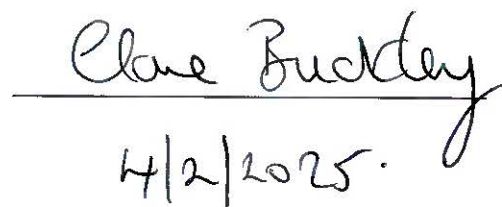 Clare Buckley
4/2/2025.